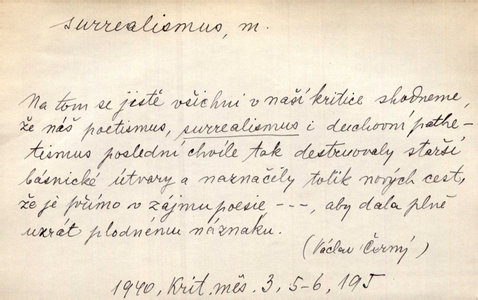 surrealismus, m.
Na tom se jistě všichni v naší kritice shodneme,
že náš poetismus, surrealismus i duchovní pathe-
tismus poslední chvíle tak destruovaly starší
básnické útvary a naznačily tolik nových cest,
že je přímo v zájmu poesie ---, aby dala plně
uzrát plodnému náznaku.
(Václav Černý)
1940, Krit. měs. 3, 5-6, 195